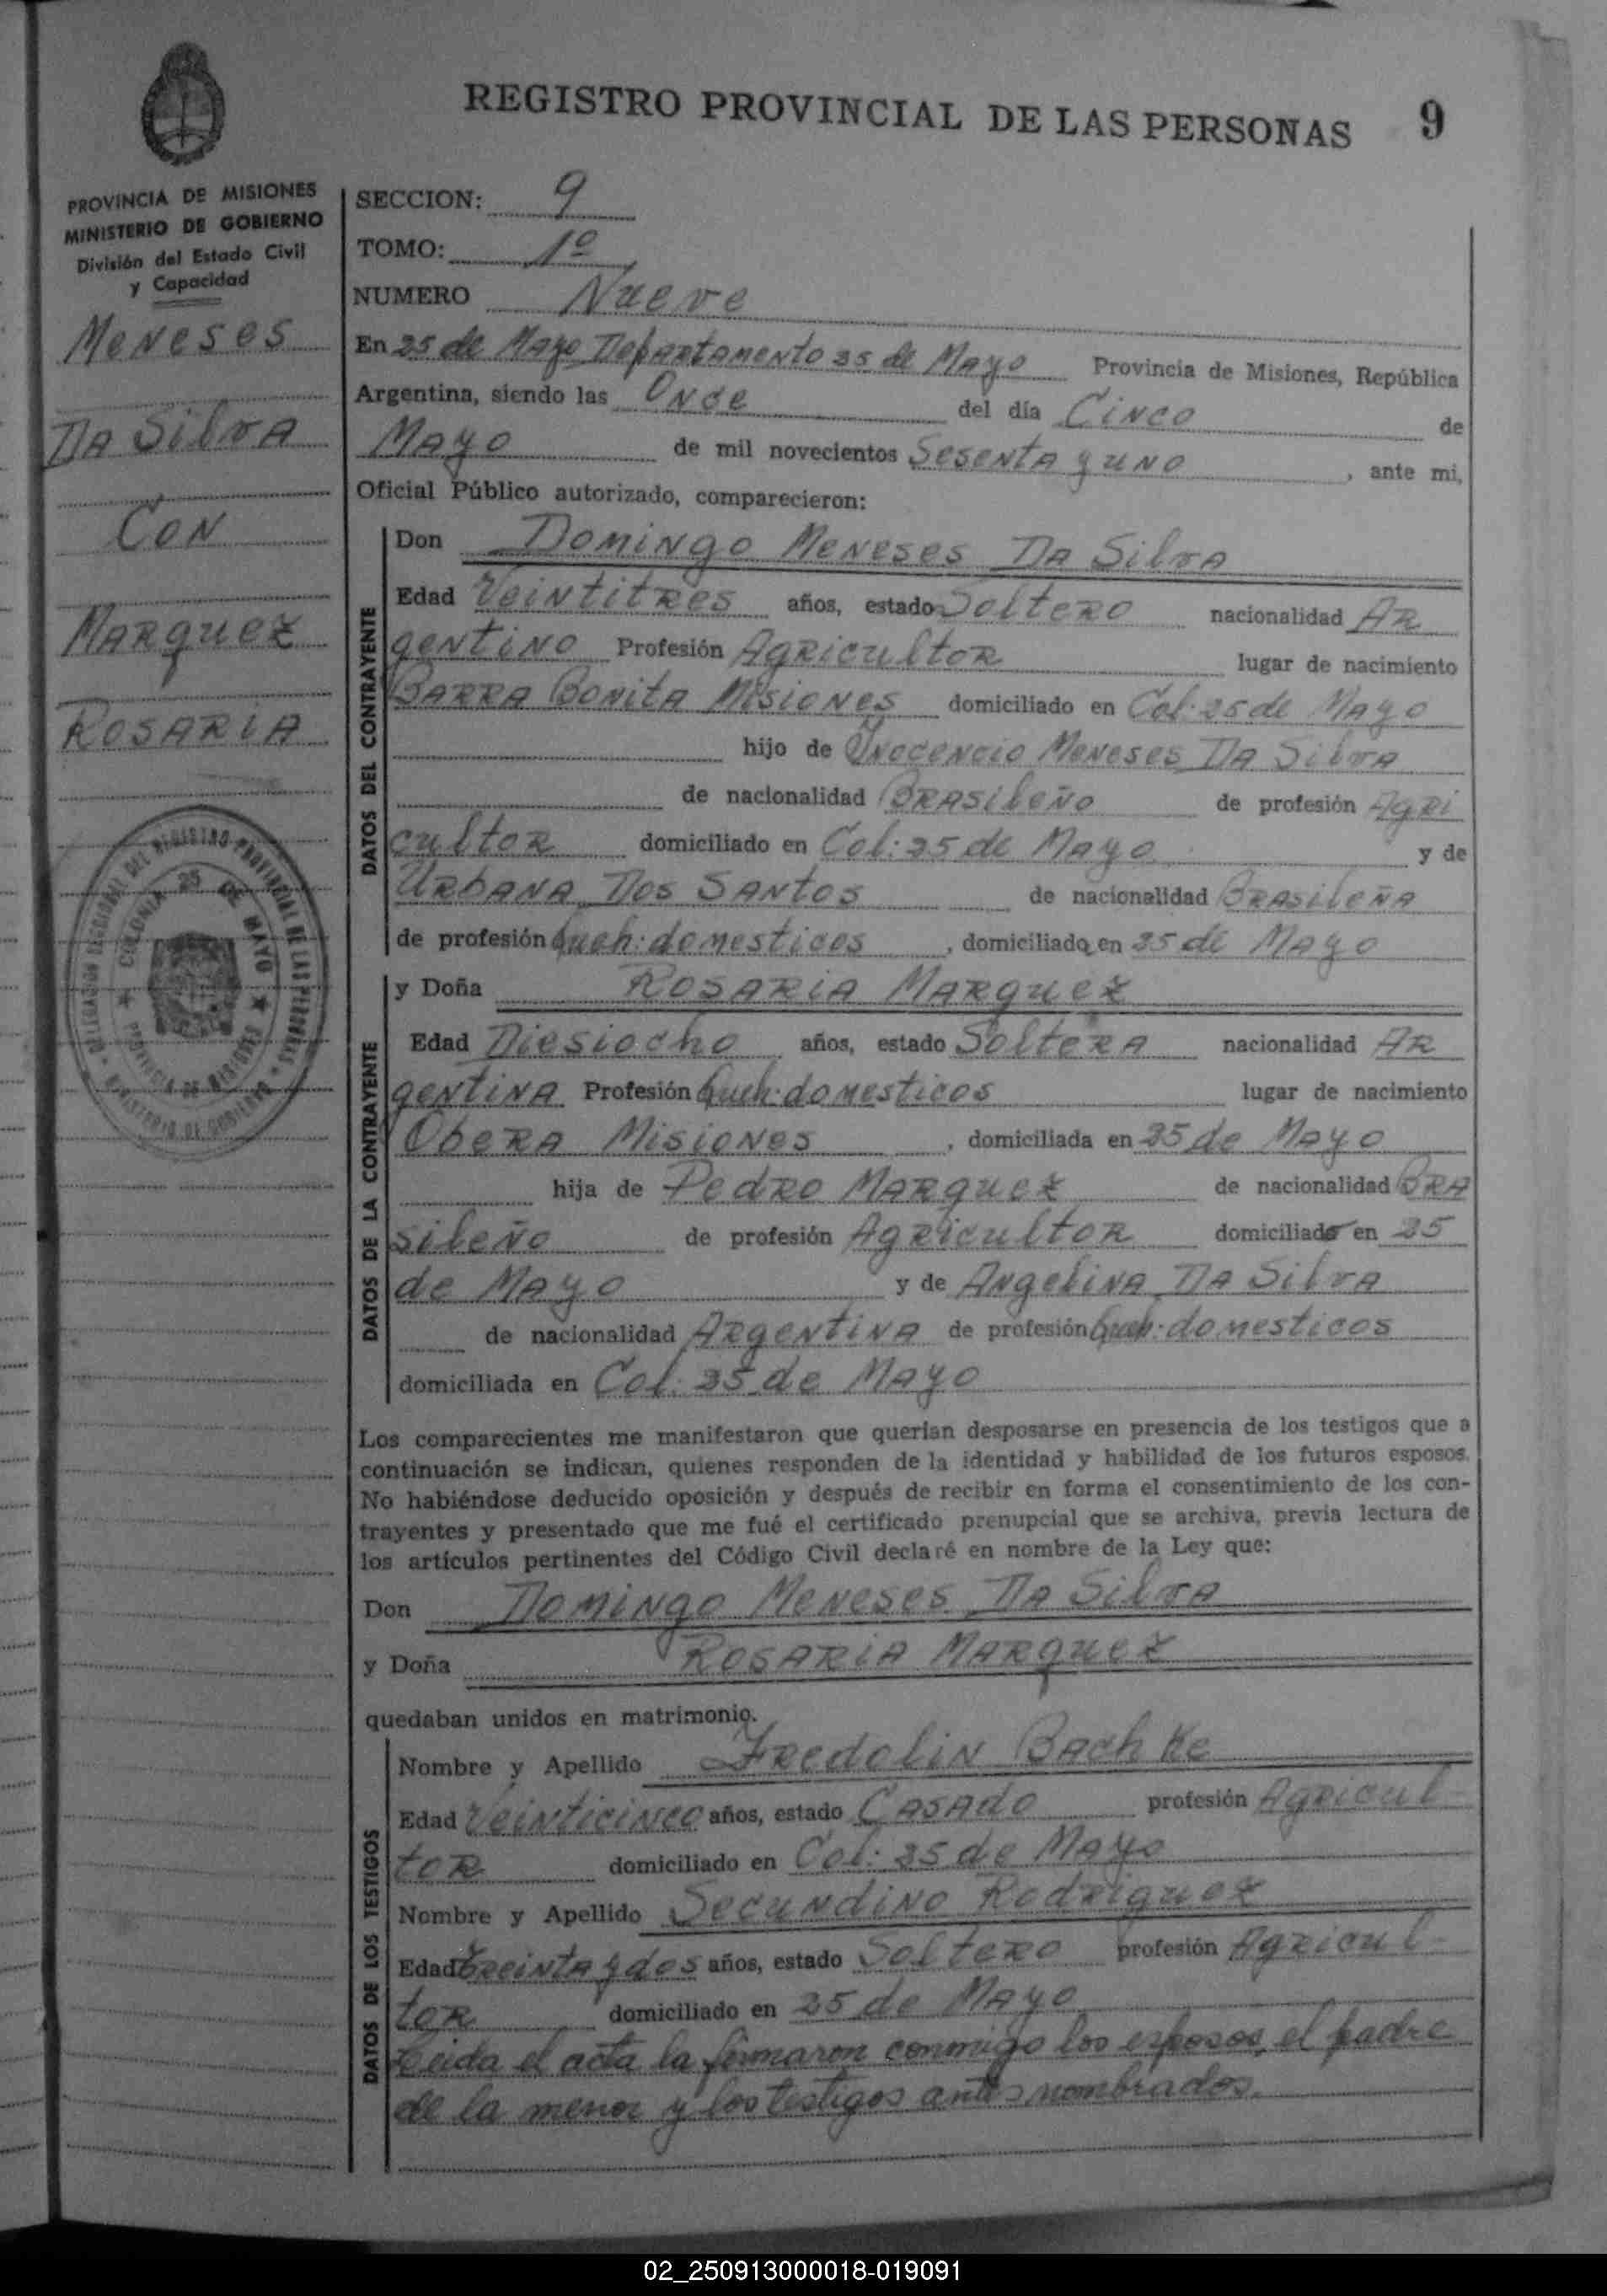 REGISTRO PROVINCIAL DE LAS PERSONAS 9
PROVINCIA DE MISIONES
MINISTERIO DE GOBIERNO
División del Estado Civil
y Capacidad
Meneses
Da Silva
Con
Marquez
Rosaria
DELEGACION SECCIONAL DEL REGISTRO PROVINCIAL DE LAS PERSONAS
MINISTERIO DE GOBIERNO
COLONIA 25 DE MAYO
PROVINCIA DE MISIONES
SECCION: 9
TOMO: 1º
NUMERO Nueve
En 25 de Mayo Departamento 25 de Mayo Provincia de Misiones, República
Argentina, siendo las Once del día Cinco de
Mayo de mil novecientos Sesenta y uno, ante mi,
Oficial Público autorizado, comparecieron:
DATOS DEL CONTRAYENTE
Don Domingo Meneses Da Silva
Edad Veintitres años, estado Soltero nacionalidad Ar
gentino Profesión Agricultor lugar de nacimiento
Barra Bonita Misiones domiciliado en Col. 25 de Mayo
hijo de Inocencio Meneses Da Silva
de nacionalidad Brasileño de profesión Agri
cultor domiciliado en Col: 25 de Mayo y de
Urbana Dos Santos de nacionalidad Brasileña
de profesión queh: domesticos, domiciliada en 25 de Mayo
DATOS DE LA CONTRAYENTE
y Doña Rosaria Marquez
Edad Diesiocho años, estado Soltera nacionalidad Ar
gentina Profesión queh: domesticos lugar de nacimiento
Obera Misiones, domiciliada en 25 de Mayo
hija de Pedro Marquez de nacionalidad Bra
sileño de profesión Agricultor domiciliado en 25
de Mayo y de Angelina Da Silva
de nacionalidad Argentina de profesión queh: domesticos
domiciliada en Col. 25 de Mayo
Los comparecientes me manifestaron que querían desposarse en presencia de los testigos que a
continuación se indican, quienes responden de la identidad y habilidad de los futuros esposos.
No habiéndose deducido oposición y después de recibir en forma el consentimiento de los con-
trayentes y presentado que me fué el certificado prenupcial que se archiva, previa lectura de
los artículos pertinentes del Código Civil declaré en nombre de la Ley que:
Don Domingo Meneses Da Silva
y Doña Rosaria Marquez
quedaban unidos en matrimonio.
DATOS DE LOS TESTIGOS
Nombre y Apellido Fredolin Bachke
Edad Veinticinco años, estado Casado profesión Agricul-
tor domiciliado en Col: 25 de Mayo
Nombre y Apellido Secundino Rodriguez
Edad treinta y dos años, estado Soltero profesión Agricul-
tor domiciliado en 25 de Mayo
Leida el acta la firmaron conmigo los esposos, el padre
de la menor y los testigos antes nombrados.
02_250913000018-019091